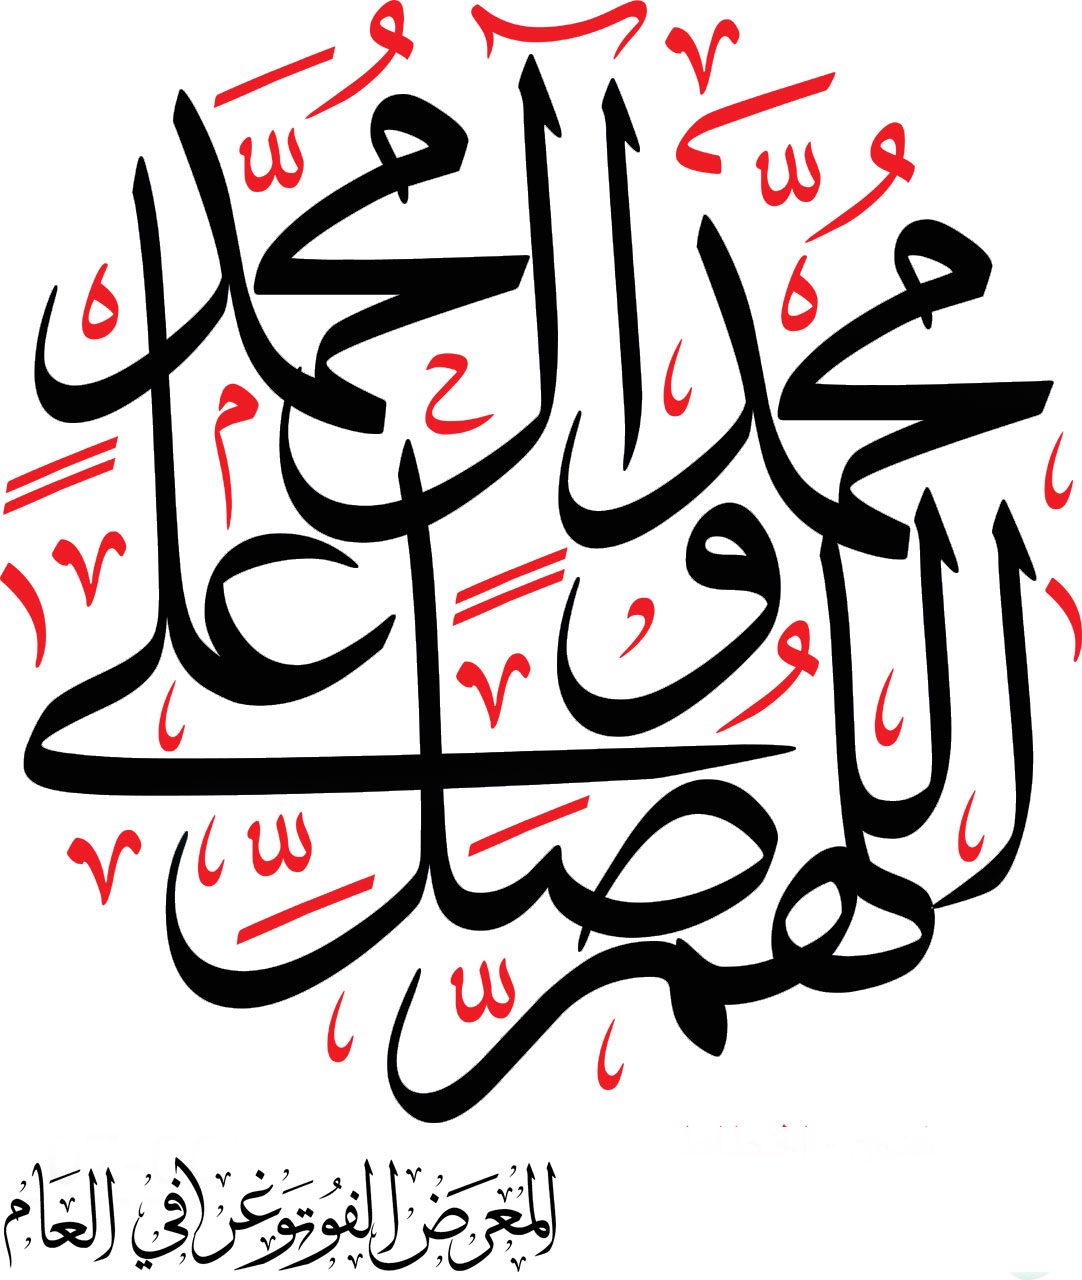 اللهم صل على محمد وآل محمد
المعرض الفوتوغرافي العام